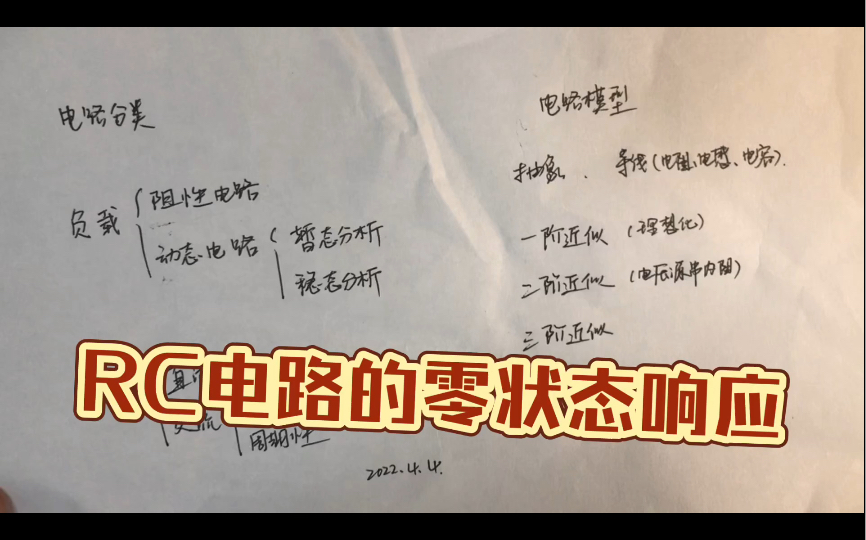 电路分类
负载
阻性电路
动态电路
暂态分析
稳态分析
周期性
电路模型
抽象、导线(电阻、电感、电容).
一阶近似(理想化)
二阶近似(电压源串内阻)
三阶近似
RC电路的零状态响应
2022.4.4.